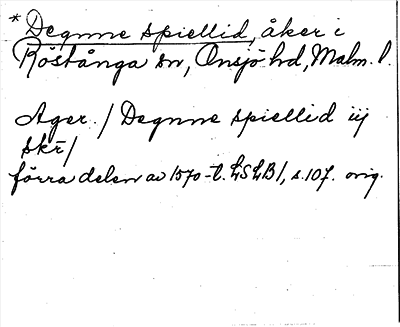 * Degnne spiellid, åker i
Röstånga sn, Onsjö hd, Malm. l.
Ager / Degnne spiellid iij
skr̄/
förra delen av 1570-t. LSLB1, s. 107. orig.